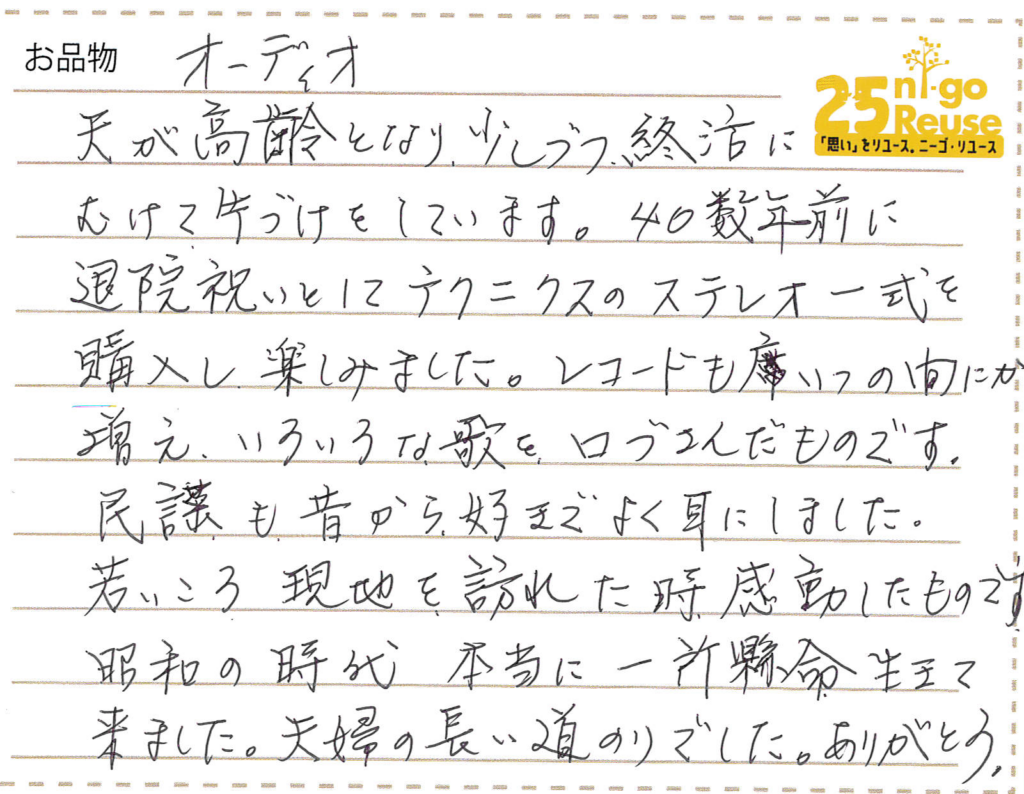 お品物 オーディオ
25 ni-go Reuse
「思い」をリユース。ニーゴ・リユース
夫が高齢となり、少しづつ、終活に
むけて片づけをしています。40数年前に
退院祝いとしてテクニクスのステレオ一式を
購入し、楽しみました。レコードもいつの間にか
増え、いろいろな歌を、口づさんだものです。
民謡も昔から、好きでよく耳にしました。
若いころ現地を訪れた時、感動したものです
昭和の時代 本当に一所懸命生きて
来ました。夫婦の長い道のりでした。ありがとう。